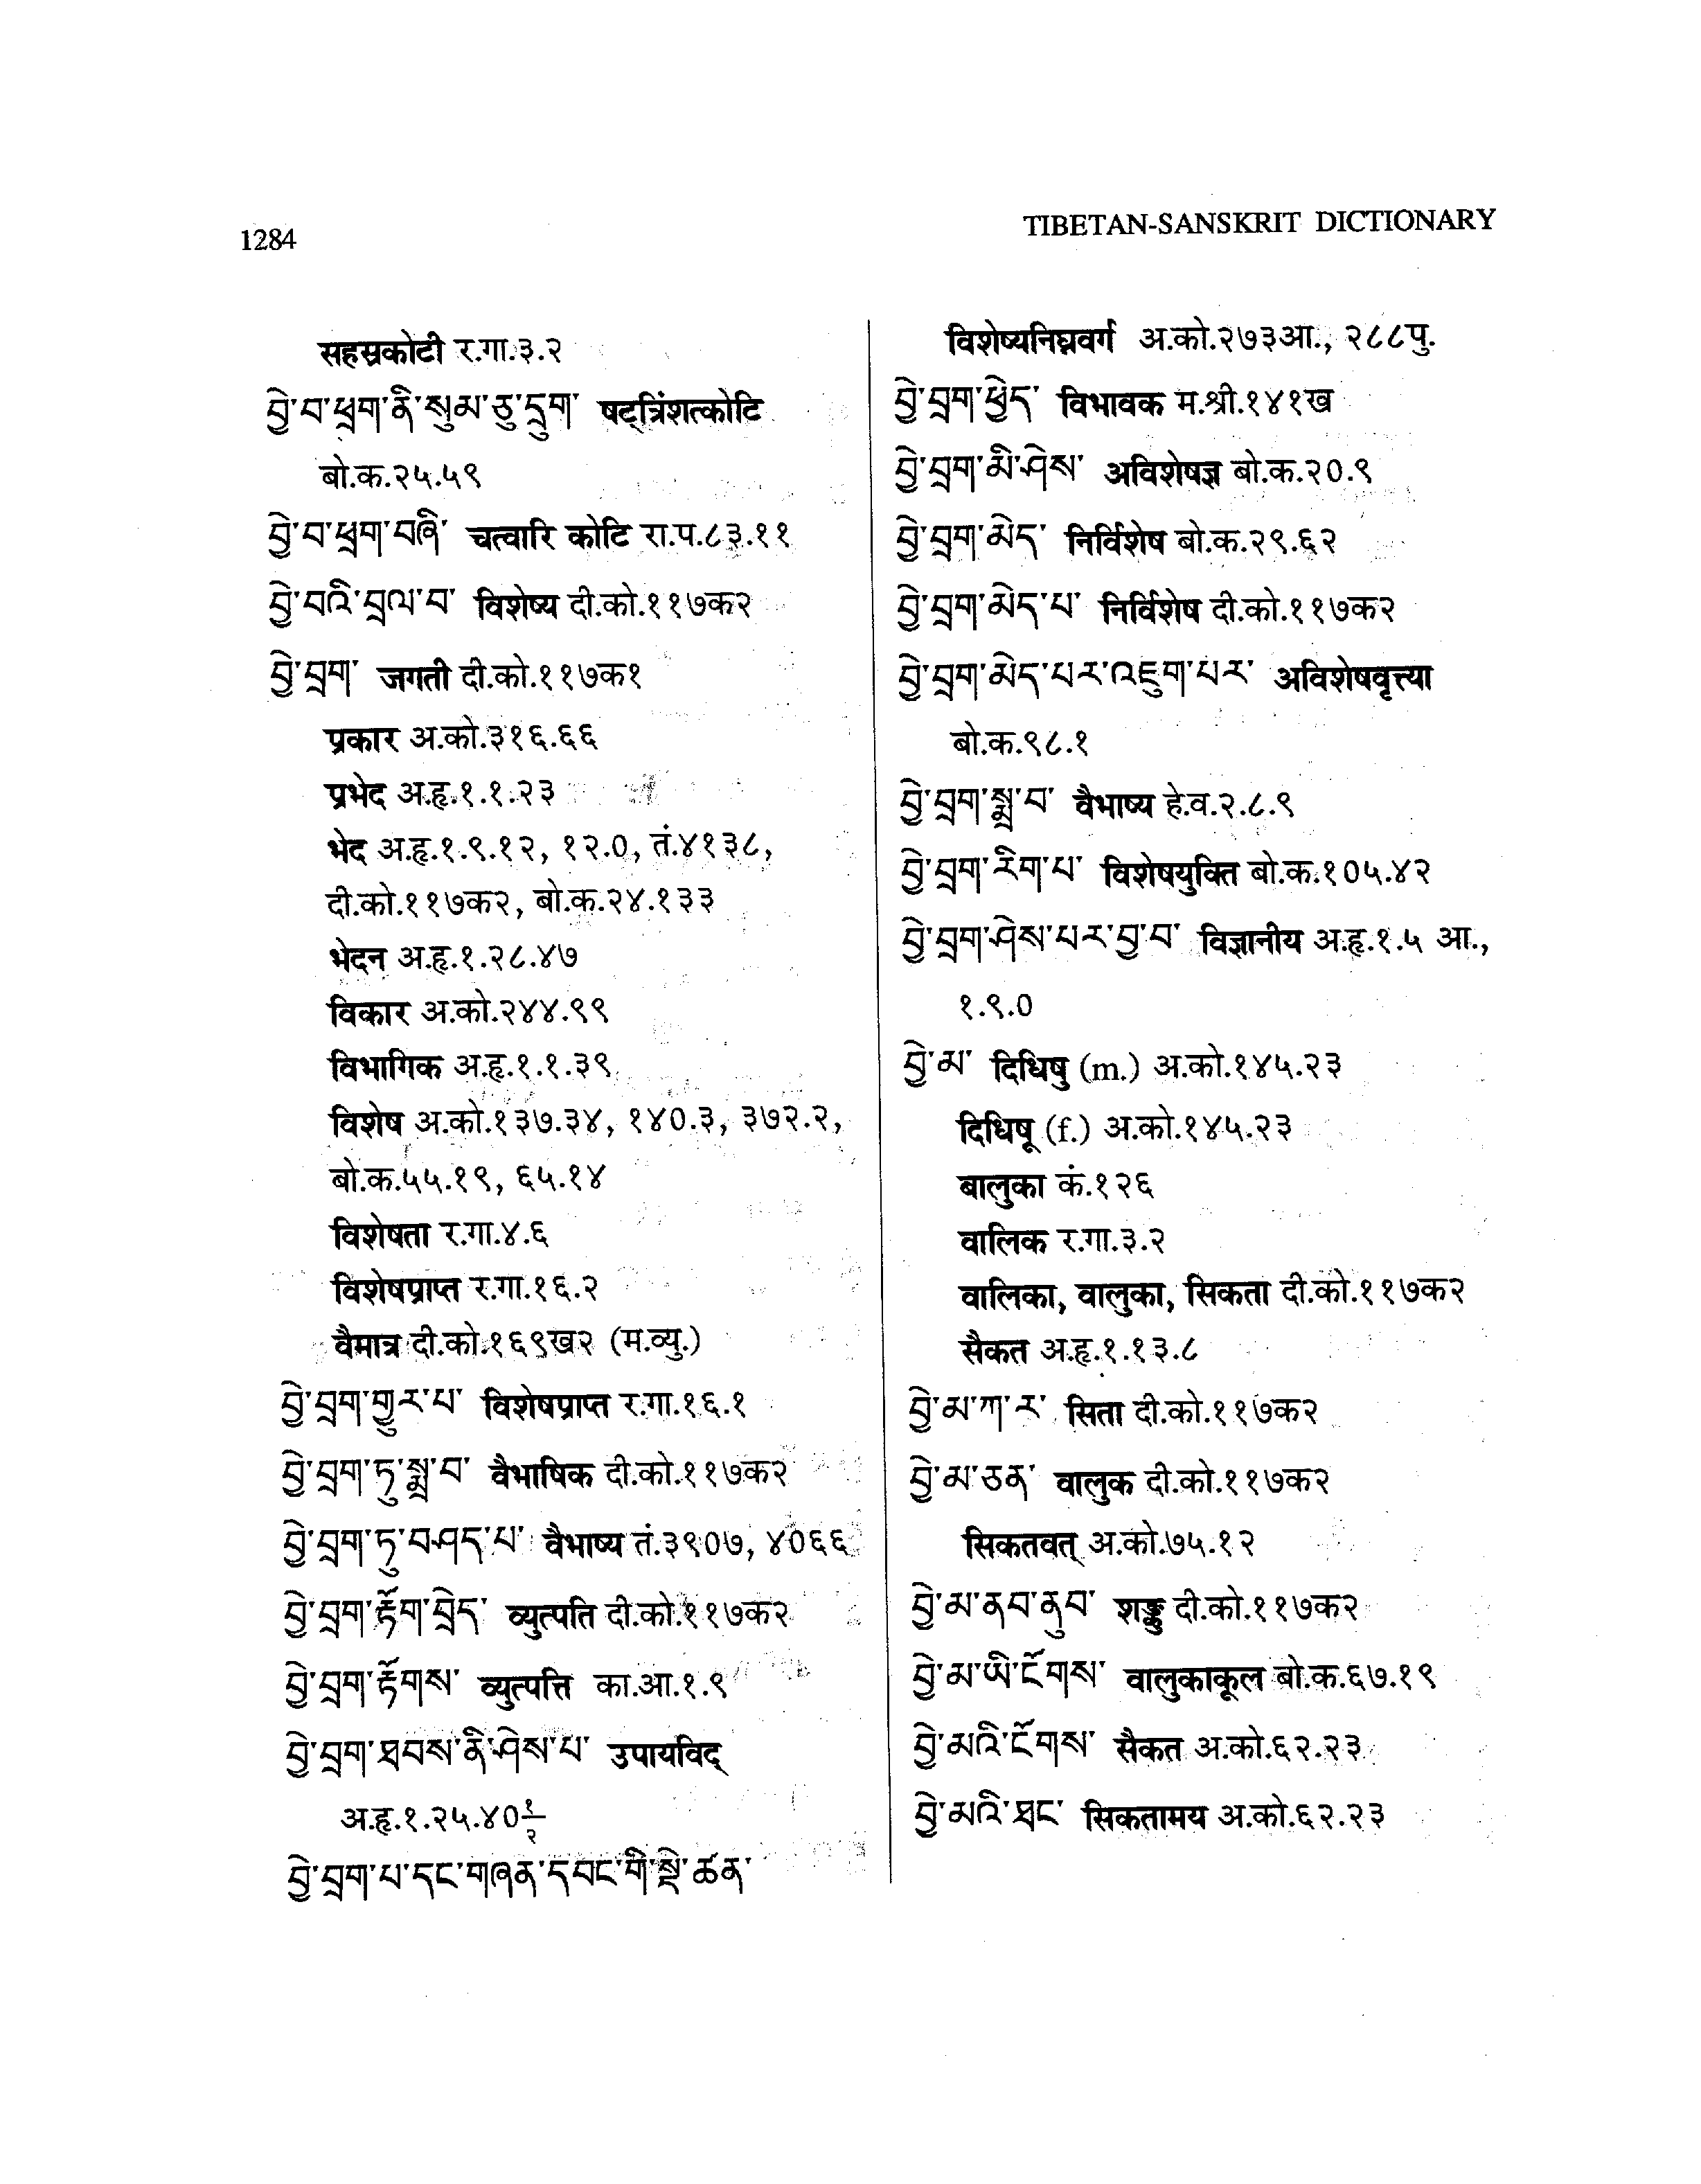 1284
TIBETAN-SANSKRIT DICTIONARY
सहस्रकोटी र.गा.३.२
བྱེ་བ་ཕྲག་ནི་སུམ་ཅུ་དྲུག་ षट्त्रिंशत्कोटि
बो.क.२५.५९
བྱེ་བ་ཕྲག་བཞི་ चत्वारि कोटि रा.प.८३.११
བྱེ་བའི་བྲལ་བ་ विशेष्य दी.को.११७क२
བྱེ་བྲག་ जगती दी.को.११७क१
प्रकार अ.को.३१६.६६
प्रभेद अ.हृ.१.१.२३
भेद अ.हृ.१.९.१२, १२.0, तं.४१३८,
दी.को.११७क२, बो.क.२४.१३३
भेदन अ.हृ.१.२८.४७
विकार अ.को.२४४.९९
विभागिक अ.हृ.१.१.३९
विशेष अ.को.१३७.३४, १४0.३, ३७२.२,
बो.क.५५.१९, ६५.१४
विशेषता र.गा.४.६
विशेषप्राप्त र.गा.१६.२
वैमात्र दी.को.१६९ख२ (म.व्यु.)
བྱེ་བྲག་གྱུར་པ་ विशेषप्राप्त र.गा.१६.१
བྱེ་བྲག་ཏུ་སྨྲ་བ་ वैभाषिक दी.को.११७क२
བྱེ་བྲག་ཏུ་བཤད་པ་ वैभाष्य तं.३९0७, ४0६६
བྱེ་བྲག་རྟོག་བྲེད་ व्युत्पति दी.को.११७क२
བྱེ་བྲག་རྟོགས་ व्युत्पत्ति का.आ.१.९
བྱེ་བྲག་ཐབས་ནི་ཤེས་པ་ उपायविद्
अ.हृ.१.२५.४0१/२
བྱེ་བྲག་པ་དང་གཞན་དབང་གི་སྡེ་ཚན་
विशेष्यनिघ्नवर्ग अ.को.२७३आ., २८८पु.
བྱེ་བྲག་ཕྱེད་ विभावक म.श्री.१४१ख
བྱེ་བྲག་མི་ཤེས་ अविशेषज्ञ बो.क.२0.९
བྱེ་བྲག་མེད་ निर्विशेष बो.क.२९.६२
བྱེ་བྲག་མེད་པ་ निर्विशेष दी.को.११७क२
བྱེ་བྲག་མེད་པར་འཇུག་པར་ अविशेषवृत्त्या
बो.क.९८.१
བྱེ་བྲག་སྨྲ་བ་ वैभाष्य हे.व.२.८.९
བྱེ་བྲག་རིག་པ་ विशेषयुक्ति बो.क.१0५.४२
བྱེ་བྲག་ཤེས་པར་བྱ་བ་ विज्ञानीय अ.हृ.१.५ आ.,
१.९.0
བྱེ་མ་ दिधिषु (m.) अ.को.१४५.२३
दिधिषू (f.) अ.को.१४५.२३
बालुका कं.१२६
वालिक र.गा.३.२
वालिका, वालुका, सिकता दी.को.११७क२
सैकत अ.हृ.१.१३.८
བྱེ་མ་ཀ་ར་ सिता दी.को.११७क२
བྱེ་མ་ཅན་ वालुक दी.को.११७क२
सिकतवत् अ.को.७५.१२
བྱེ་མ་ནབ་ནུབ་ शङ्कु दी.को.११७क२
བྱེ་མ་ཡི་ངོགས་ वालुकाकूल बो.क.६७.१९
བྱེ་མའི་ངོགས་ सैकत अ.को.६२.२३
བྱེ་མའི་ཐང་ सिकतामय अ.को.६२.२३